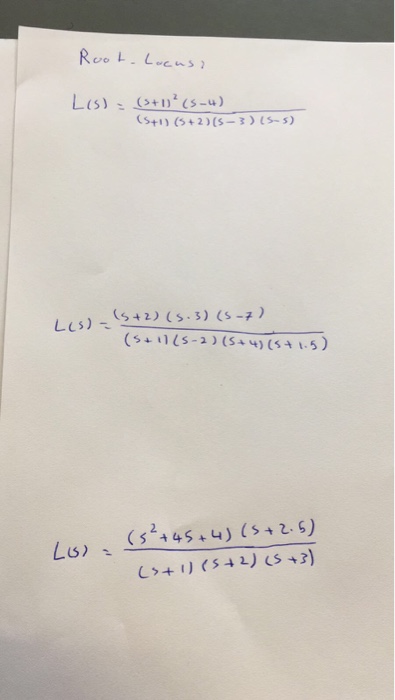 Root-Locus:
L(s) = (s+1)² (s-4)
(s+1) (s+2) (s-3) (s-5)
L(s) = (s+2) (s-3) (s-7)
(s+1) (s-2) (s+4) (s+1.5)
L(s) = (s²+4s+4) (s+2.5)
(s+1) (s+2) (s+3)